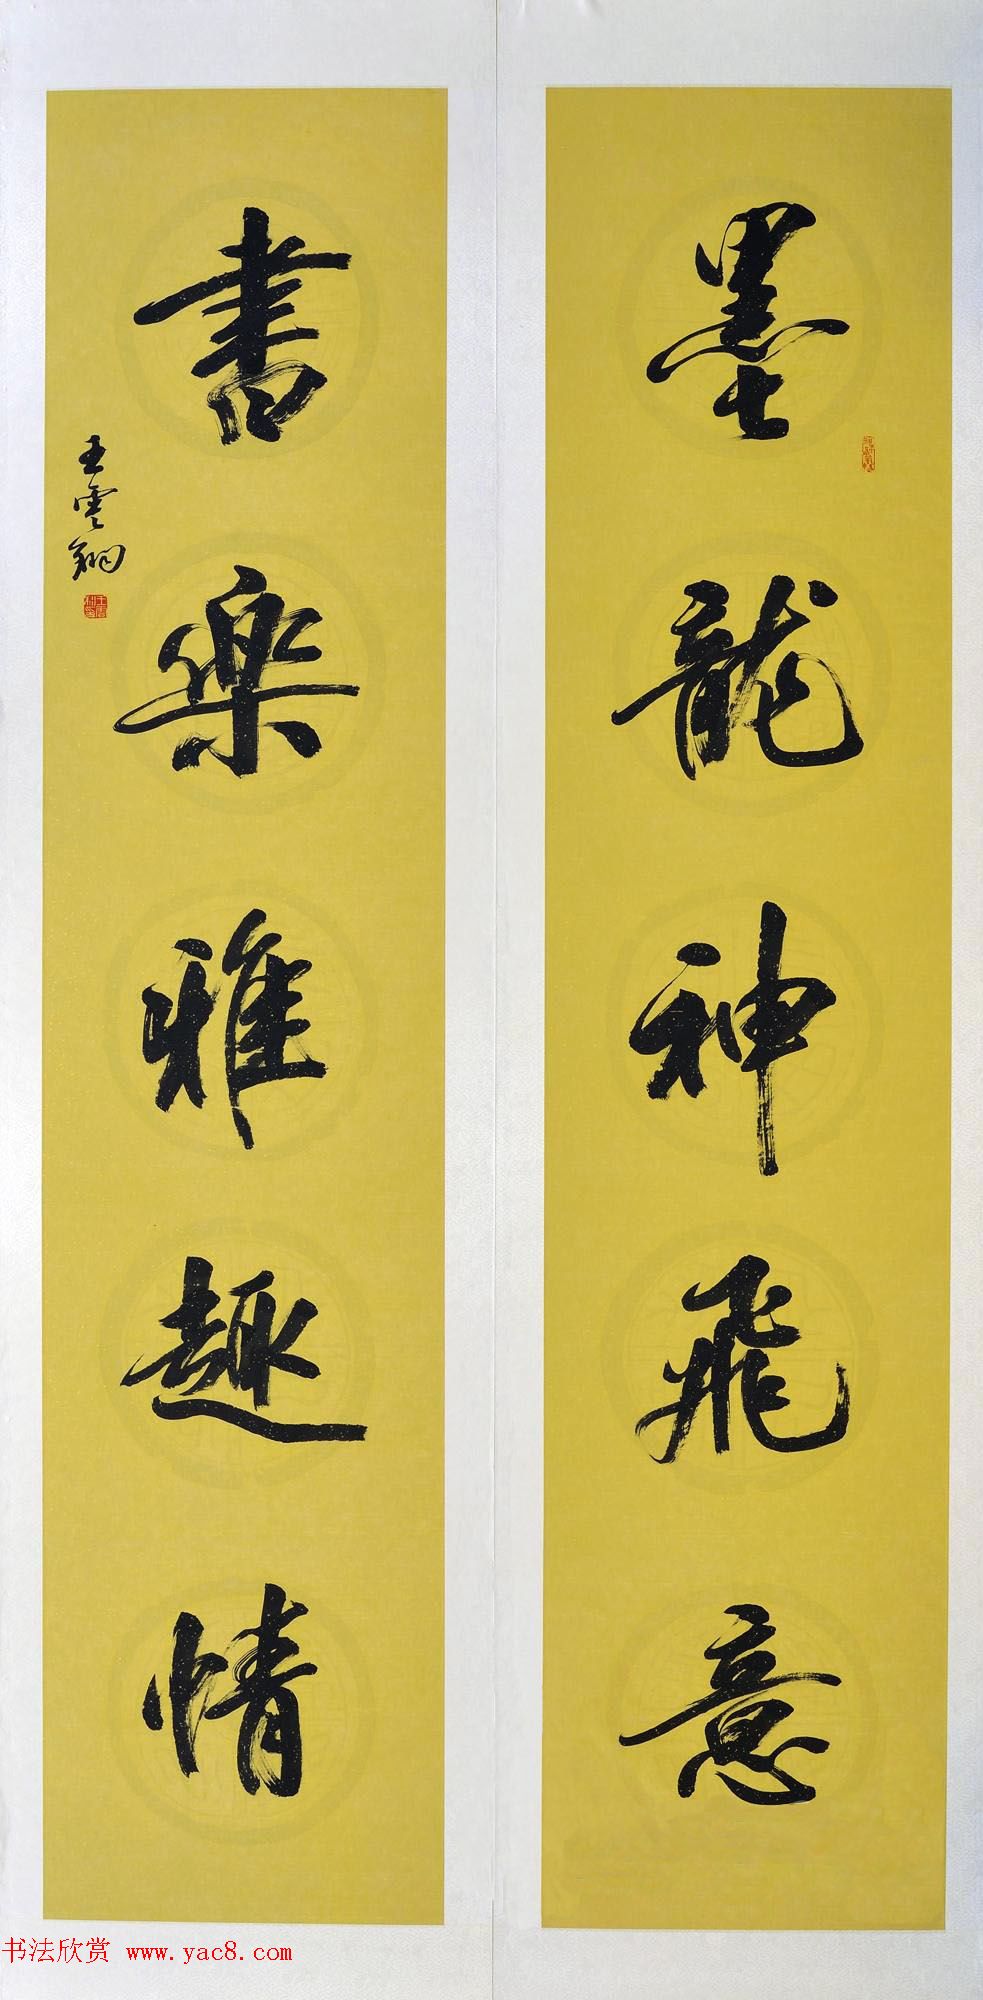 墨龍神飛意
書樂雅趣情
王雲翔
书法欣赏 www.yac8.com